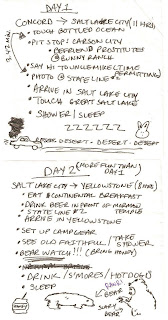 DAY 1
CONCORD → SALT LAKE CITY (11 HRS)
• TOUCH BOTTLED OCEAN
• PIT STOP! CARSON CITY
• BEFRIEND PROSTITUTES
@ BUNNY RANCH
• SAY HI TO UNCLE MIKE (TIME
PERMITTING)
• PHOTO @ STATE LINE #1
• ARRIVE IN SALT LAKE CITY
• TOUCH GREAT SALT LAKE
• SHOWER/SLEEP
ZZZZZZZ
DESERT - DESERT - DESERT
DAY 2 (MORE FUN THAN DAY 1)
SALT LAKE CITY → YELLOWSTONE (8 HRS)
• EAT @ CONTINENTAL BREAKFAST
• DRINK BEER IN FRONT OF MORMON
TEMPLE
• STATE LINE #2
• ARRIVE IN YELLOWSTONE
• SET UP CAMP GEAR
• SEE OLD FAITHFUL / TAKE
SHOWER
• BEAR WATCH!!! (BRING HONEY)
• DRINK/S'MORES/HOTDOGS
• SLEEP
BEAR
BEAR